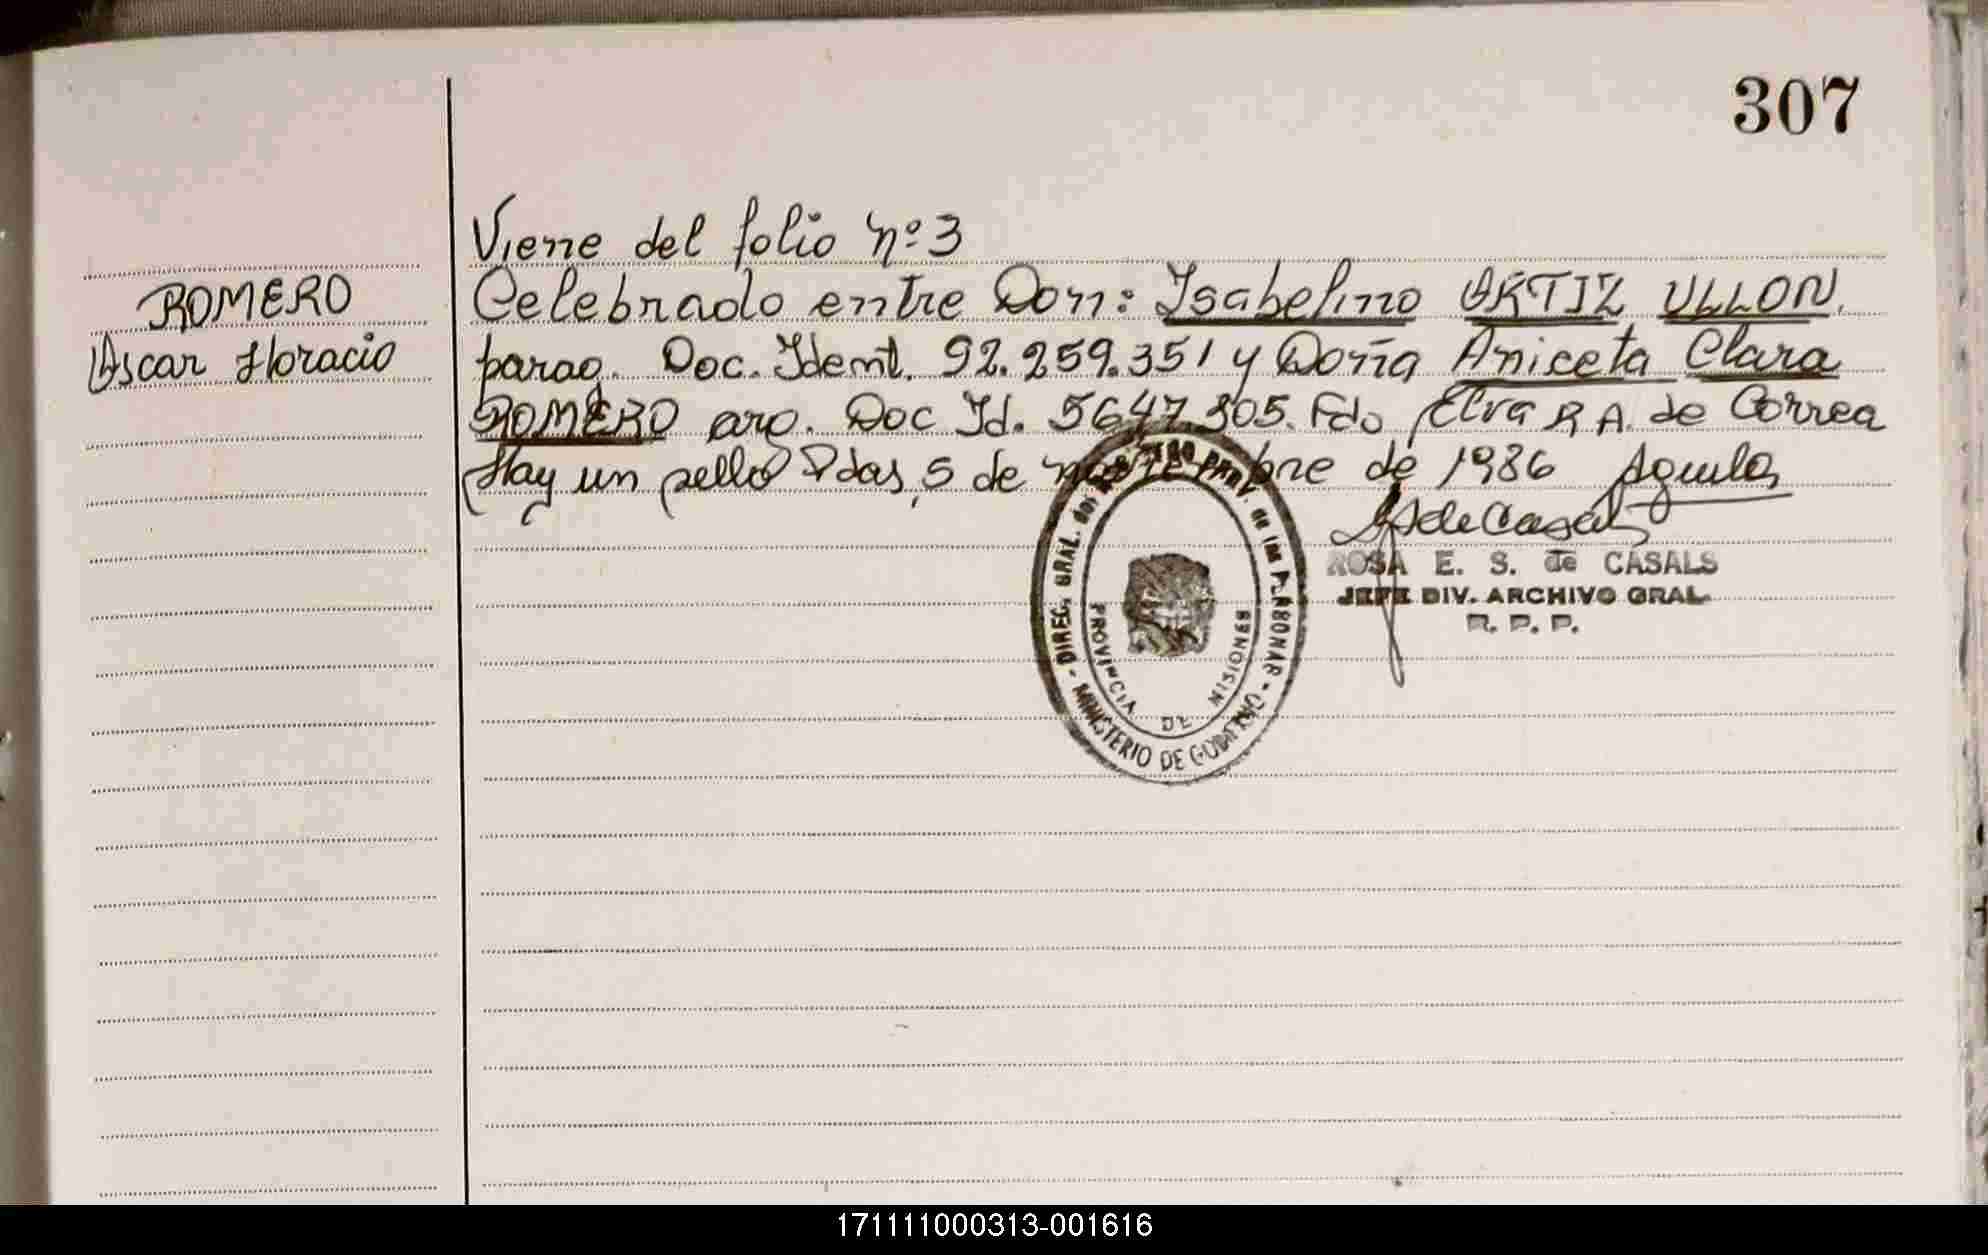 307
Viene del folio nº 3
ROMERO
Oscar Horacio
Celebrado entre Don: Isabelino ORTIZ ULLON.
parag. Doc. Ident. 92.259.351 y Doña Aniceta Clara
ROMERO arg. Doc Id. 5647.305. Fdo Elva R A. de Correa
Hay un sello Pdas, 5 de noviembre de 1986 Aguila
ROSA E. S. de CASALS
JEFE DIV. ARCHIVO GRAL.
R. P. P.
DIREC. GRAL. del REGISTRO PROV. de las PERSONAS
PROVINCIA DE MISIONES
- MINISTERIO DE GOBIERNO -
171111000313-001616